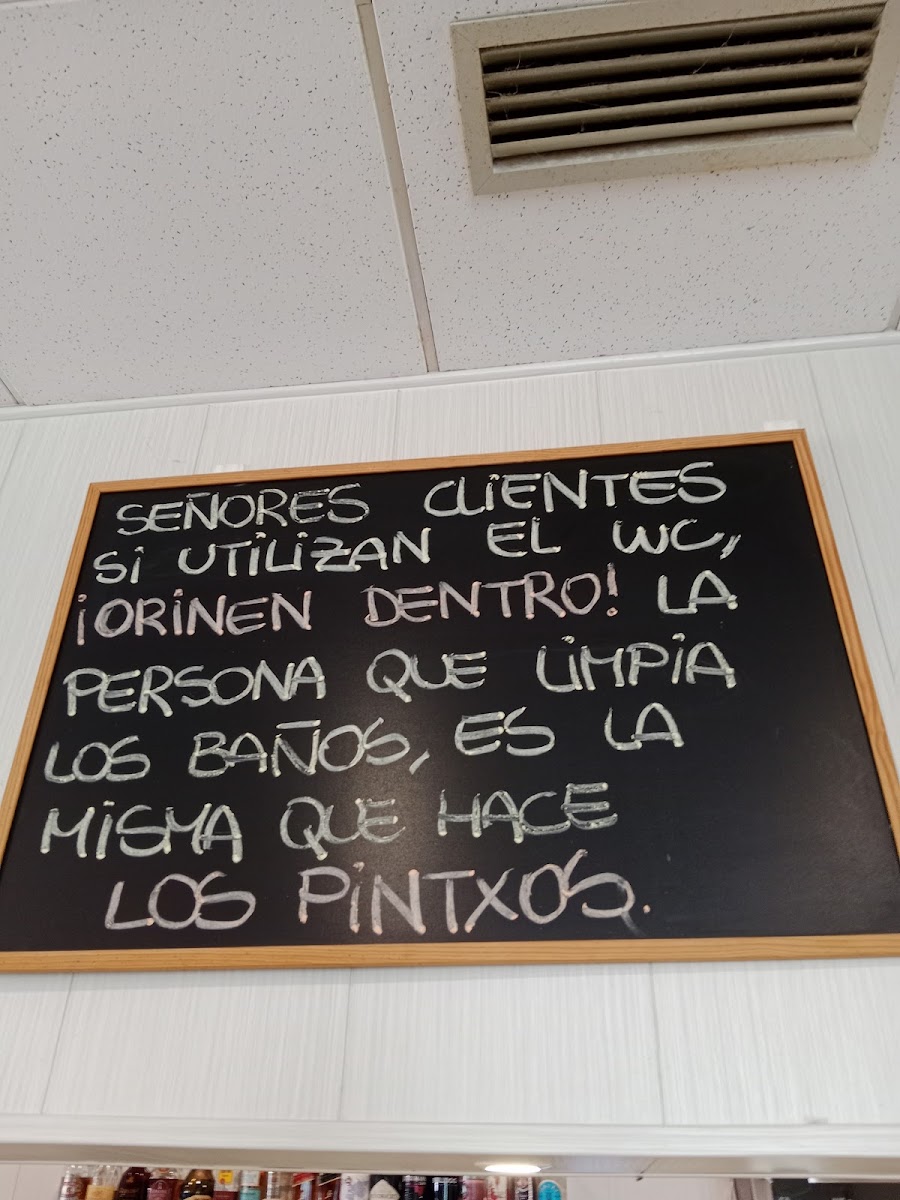 SEÑORES CLIENTES
SI UTILIZAN EL WC,
¡ORINEN DENTRO! LA
PERSONA QUE LIMPIA
LOS BAÑOS, ES LA
MISMA QUE HACE
LOS PINTXOS.